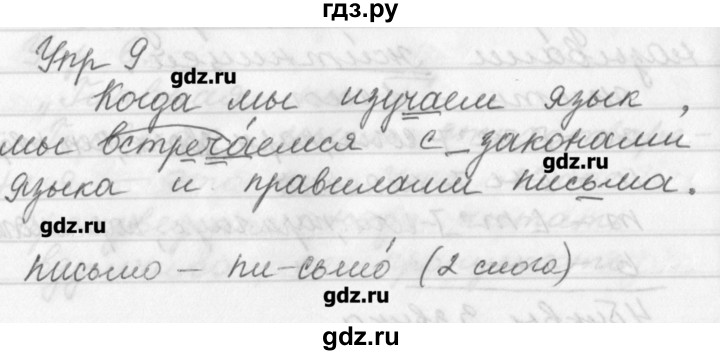 гдз.ру
Упр 9
gdz.ru
Когда мы изучаем язык,
мы встречаемся с законами
gdz.ru
языка и правилами письма.
gdz.ru
письмо – пи-сьмо́ (2 слога)
gdz.ru
gdz.ru